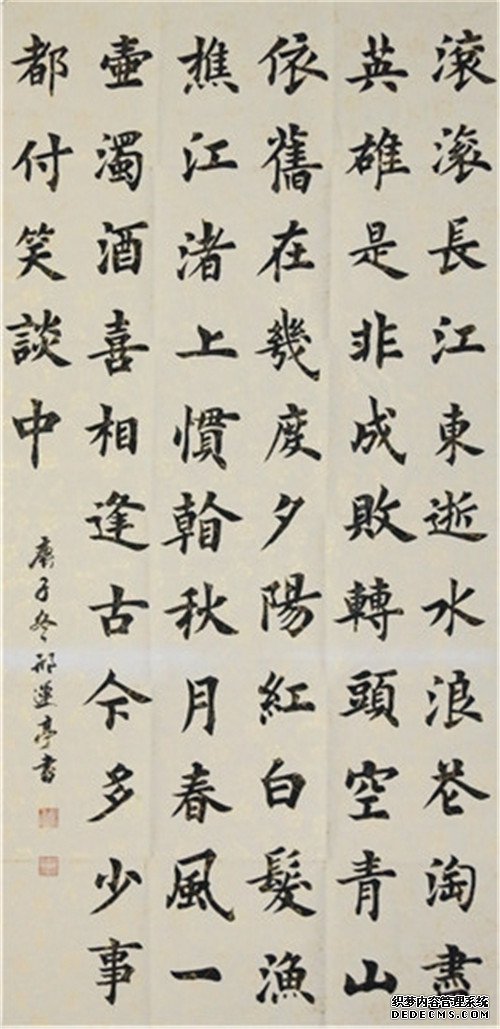 滚滚長江東逝水浪花淘盡
英雄是非成敗轉頭空青山
依舊在幾度夕陽紅白髮漁
樵江渚上慣看秋月春風一
壺濁酒喜相逢古今多少事
都付笑談中
庚子冬邢亭書
织梦内容管理系统
DEDECMS.COM